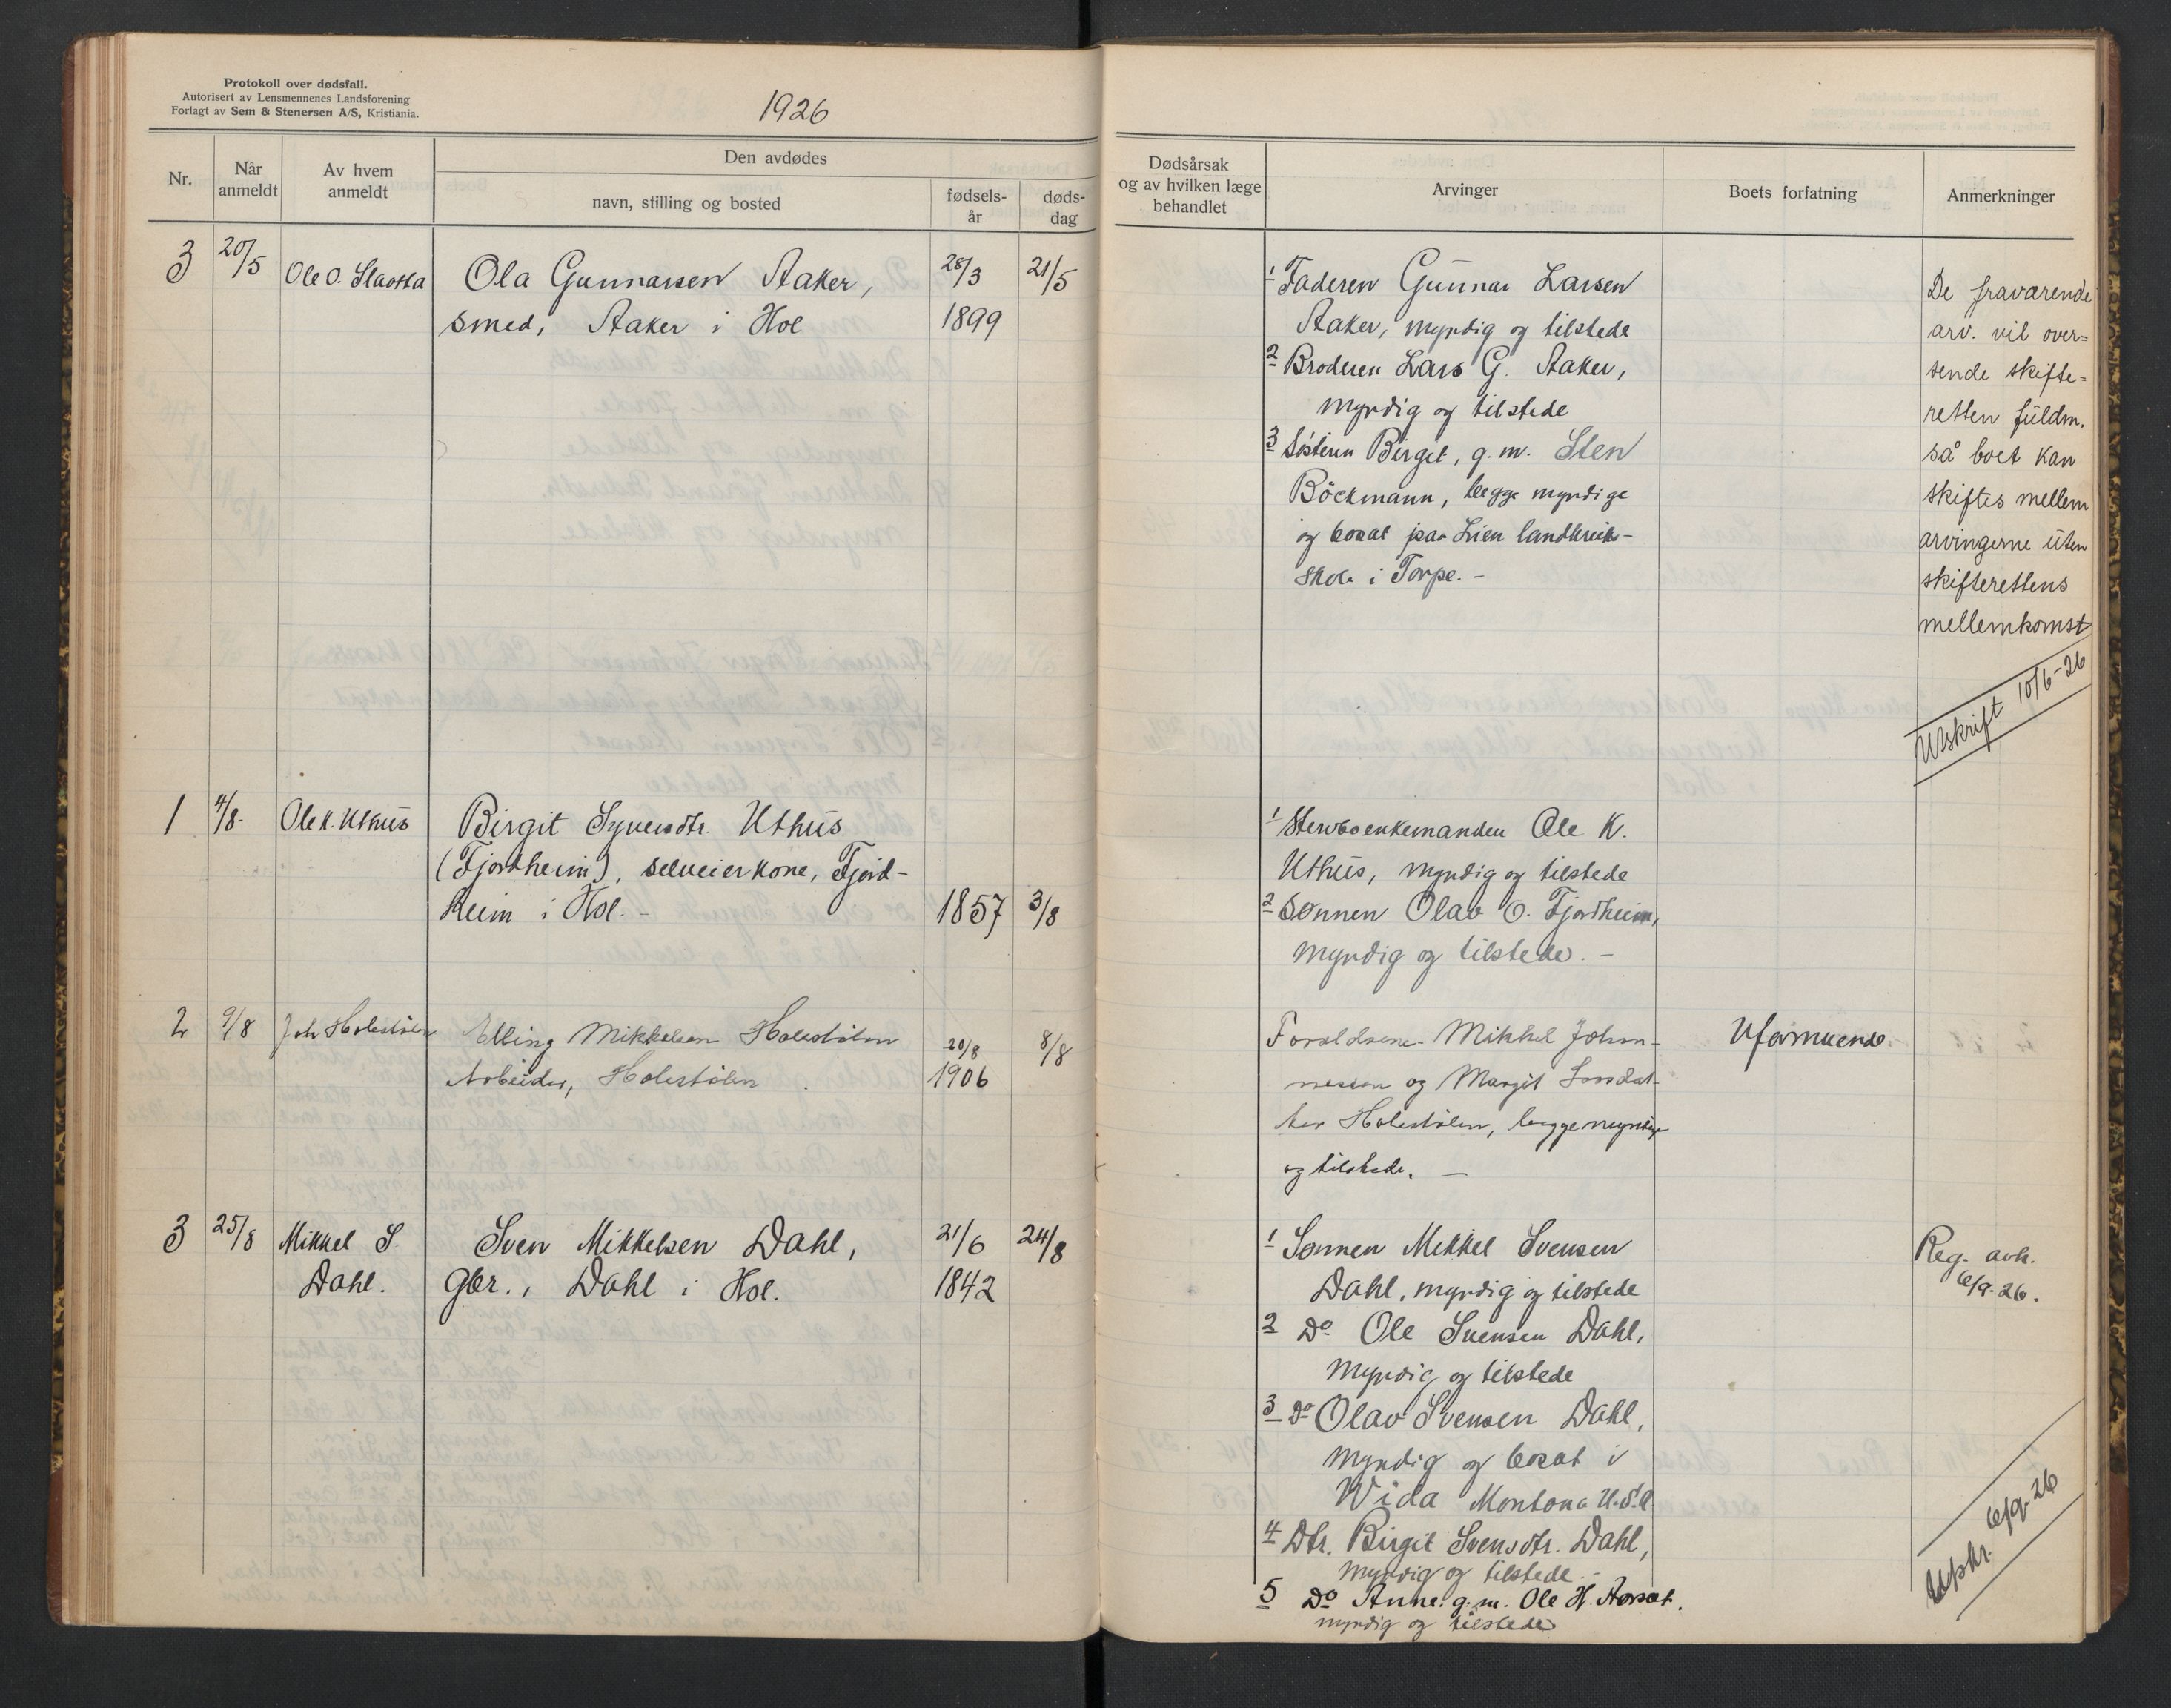 Protokoll over dødsfall.
Autorisert av Lensmennenes Landsforening
Forlagt av Sem & Stenersen A/S, Kristiania.
1926
Nr.
Når anmeldt
Av hvem anmeldt
Den avdødes
navn, stilling og bosted
fødsels-år
døds-dag
Dødsårsak og av hvilken læge behandlet
Arvinger
Boets forfatning
Anmerkninger
3 20/5 Ole O. Slaatta Ola Gunnarsen Aaker, 28/3 21/5
smed, Aaker i Hol 1899
1 Faderen Gunnar Larsen
Aaker, myndig og tilstede
2 Broderen Lars G. Aaker,
myndig og tilstede
3 Søsteren Birget, g.m. Sten
Böckmann, begge myndige
og bosat paa Lien landbruks-
skole i Torpe. -
De fraværende
arv. vil over=
sende skifte=
retten fuldm.
så boet kan
skiftes mellem
arvingerne uten
skifterettens
mellemkomst
Utskrift 10/6-26
1 4/8- Ole K. Uthus Birgit Syversdtr. Uthus
(Fjordheim), selveierkone, Fjord-
heim i Hol. - 1857 3/8
1 Stervboenkemanden Ole K.
Uthus, myndig og tilstede
2 Sønnen Olav O. Fjordheim,
myndig og tilstede. -
2 9/8 Joh Holestølen Elling Mikkelsen Holestølen 20/8 8/8
Arbeider, Holestølen 1906
Foreldrene Mikkel Johan-
nessen og Margit Larsdat-
ter Holestølen, begge myndige
og tilstede. -
Uformuende
3 25/8 Mikkel S. Sven Mikkelsen Dahl, 21/6 24/8
Dahl. Gbr., Dahl i Hol. 1842
1 Sønnen Mikkel Svensen
Dahl, myndig og tilstede
2 Do Ole Svensen Dahl,
myndig og tilstede
3 Do Olav Svensen Dahl,
myndig og bosat i
Wida Montona U.S.A.
4 Dtr. Birgit Svensdtr. Dahl,
myndig og tilstede -
5 Do Anne g.m. Ole H. Aasat.
myndig og tilstede
Reg. avh.
6/9-26.
Utskr. 6/9-26